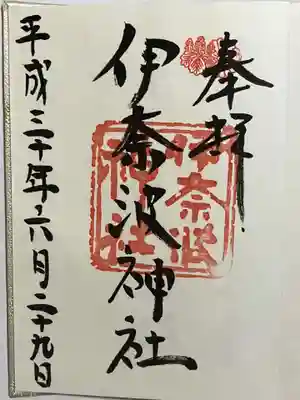 奉拝
伊奈波神社
伊奈波神社
平成三十年六月二十九日